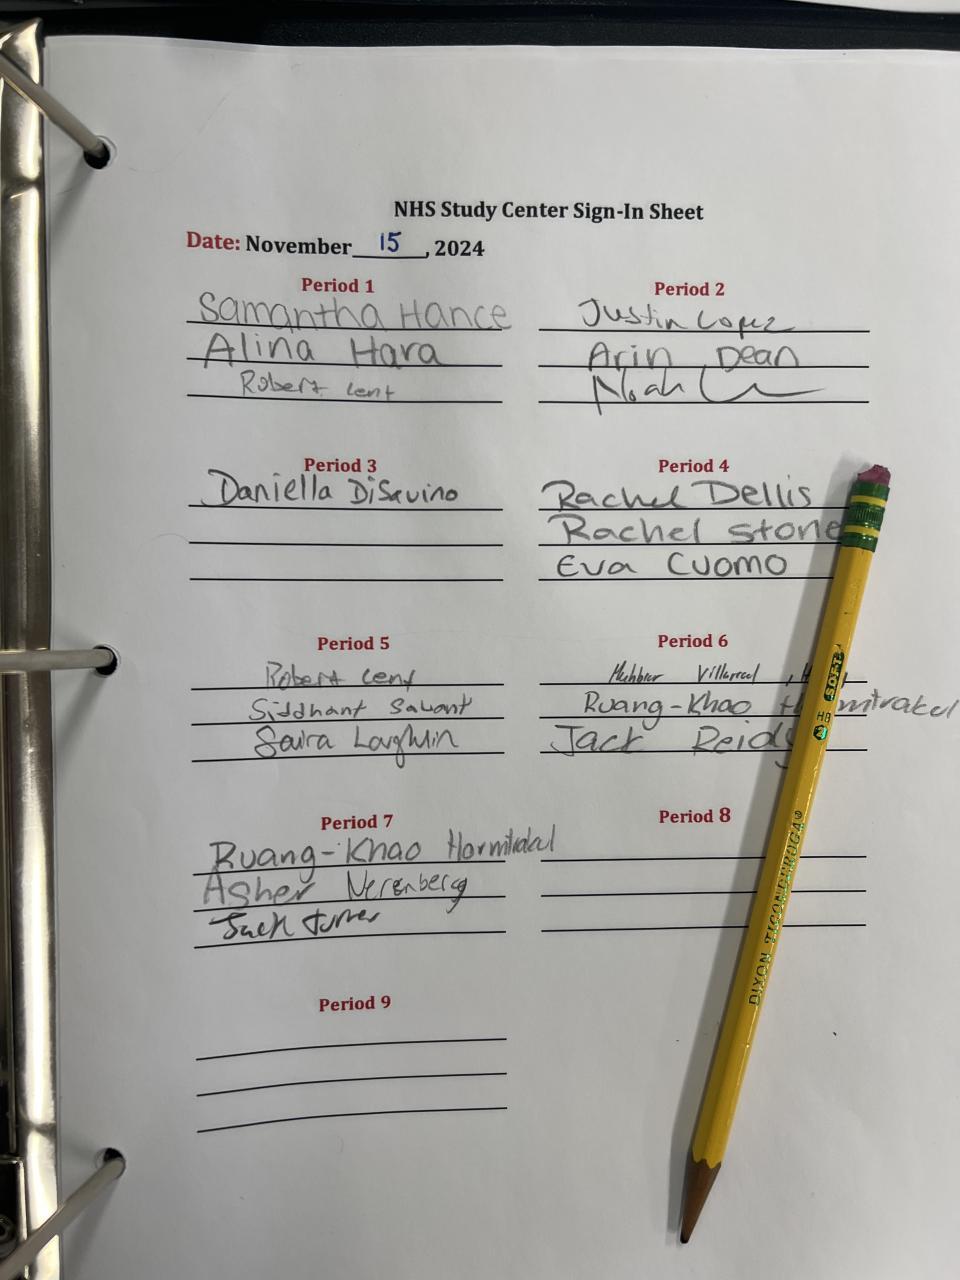 NHS Study Center Sign-In Sheet
Date: November 15, 2024
Period 1
Samantha Hance
Alina Hara
Robert Lent
Period 2
Justin Lopez
Arin Dean
Noah
Period 3
Daniella DiSavino
Period 4
Rachel Dellis
Rachel Stone
Eva Cuomo
Period 5
Robert Lent
Siddhant Sawant
Saira Laughlin
Period 6
Villarreal
Ruang-Khao
Jack Reidy
Period 7
Ruang-Khao Hormtrakul
Asher Nerenberg
Jack Turner
Period 8
Period 9
DIXON TICONDEROGA®
HB
2